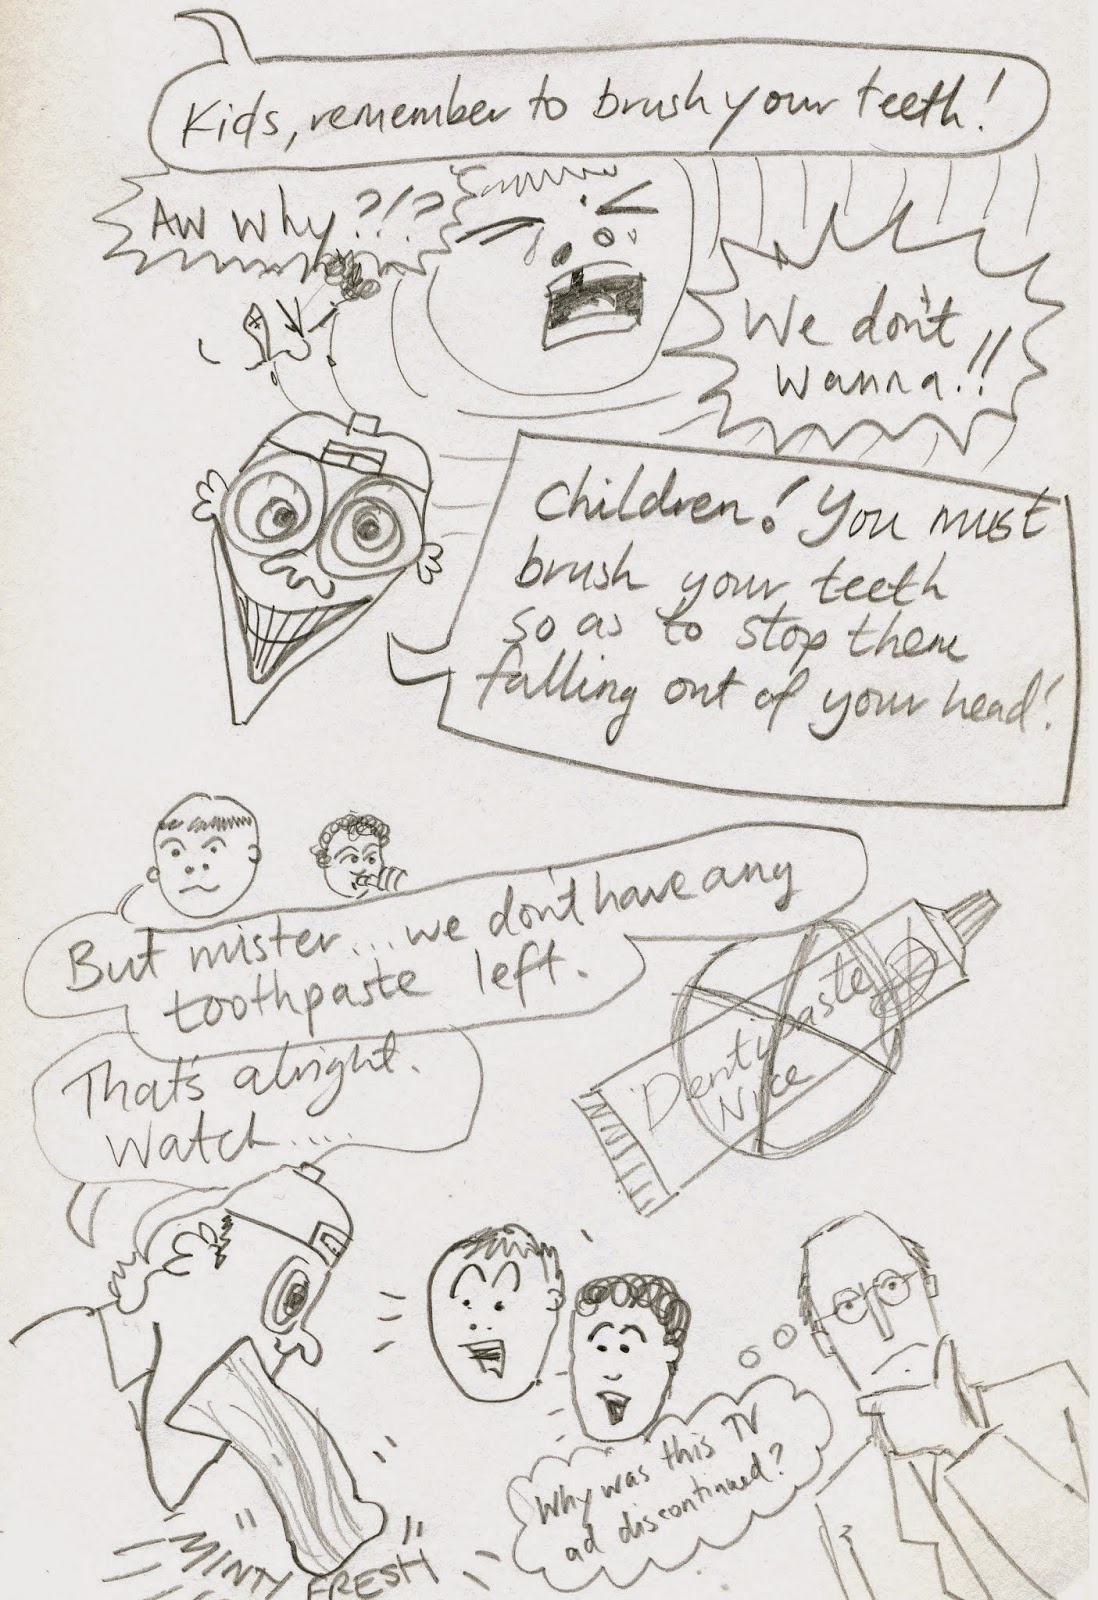 Kids, remember to brush your teeth!
AW Why?!?
We don't
wanna!!
Children! You must
brush your teeth
so as to stop them
falling out of your head!
But mister... we don't have any
toothpaste left.
Dentipaste
Nice
That's alright.
Watch.....
Why was this TV
ad discontinued?
"MINTY FRESH"